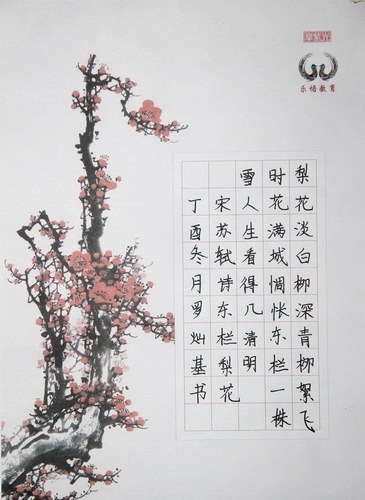 乐悟教育
梨花淡白柳深青柳絮飞
时花满城惆怅东栏一株
雪人生看得几清明
宋苏轼诗东栏梨花
丁酉冬月罗灿基书